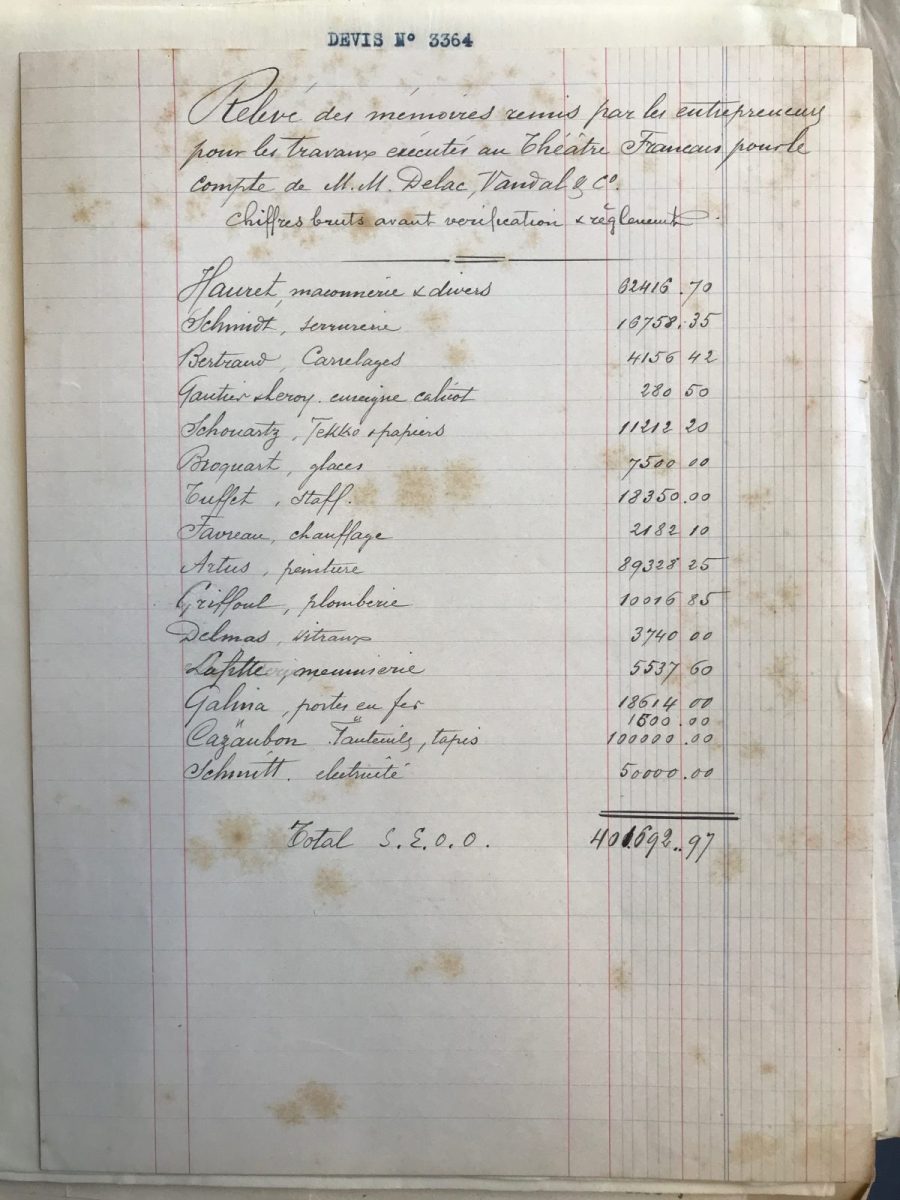 DEVIS No 3364
Relevé des mémoires remis par les entrepreneurs
pour les travaux exécutés au Théâtre Francais pour le
compte de M.M. Delac, Vandal & Co.
Chiffres bruts avant vérification & règlements.
Hauret, maconnerie & divers 62416.70
Schmidt, serrurerie 16758.35
Bertrand, Carrelages 4156 42
Gautier & Leroy. enseigne calicot 280 50
Schouartz, Tekko & papiers 11212 20
Broquart, glaces 7500 00
Tuffet, staff. 18350.00
Favreau, chauffage 2182 10
Artus, peinture 89328 25
Griffoul, plomberie 10016 85
Delmas, vitraux 3740 00
Lafitte, menuiserie 5537 60
Galina, portes en fer 18614 00
" " 1600.00
Cazaubon. Fauteuils, tapis 100000.00
Schmitt. électricité 50000.00
Total S.E.O.O. 401.692..97